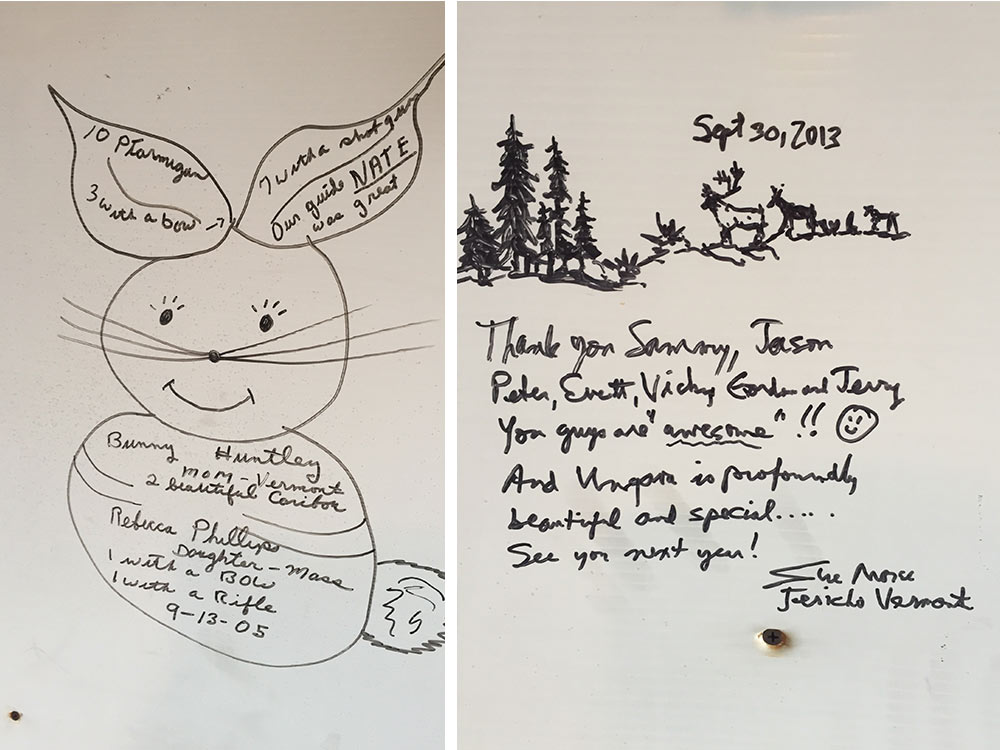 10 Ptarmigan
3 with a bow
7 with a shot gun
Our guide NATE
was great
Bunny Huntley
MOM - Vermont
2 beautiful Caribou
Rebecca Phillips
Daughter - Mass
1 with a Bow
1 with a Rifle
9-13-05
Sept 30, 2013
Thank you Sammy, Jason
Peter, Evertt, Vicky, Gordon and Jerry
You guys are "awesome" !!
And Ungava is profoundly
beautiful and special.....
See you next year!
Morse
Jericho Vermont